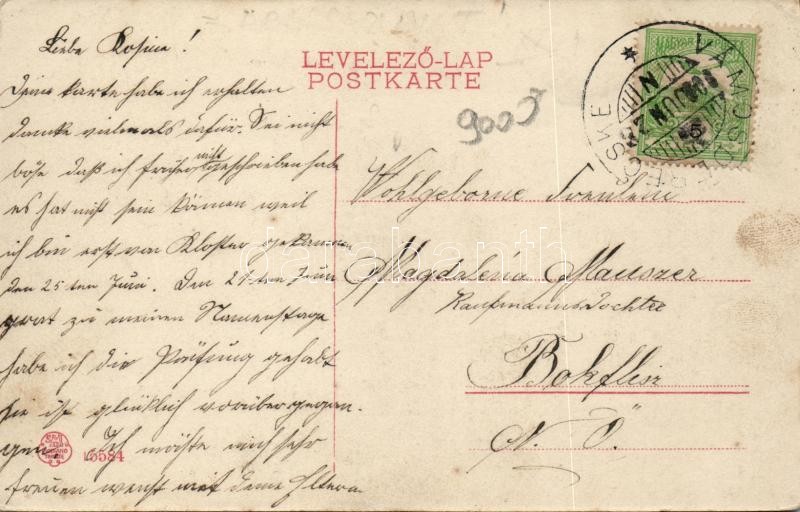 Liebe Rosina!
Deine Karte habe ich erhalten
danke vielmals dafür. Sei nicht
böse daß ich früher nicht geschrieben habe
es hat nicht sein können weil
ich bin erst von Kloster gekommen
den 25-ten Juni. Den 21-ten Juni
grat zu meinen Namenstage
habe ich die Prüfung gehabt
sie ist glücklich vorübergegan-
gen. Ich möchte mich sehr
freuen wenst mit deine Eltern
LEVELEZŐ-LAP
POSTKARTE
9005
Wohlgeborne Freulein
Magdalena Mauszer
Kaufmannstochter
Bokfliesz
N. Ö.
15584
darabanth